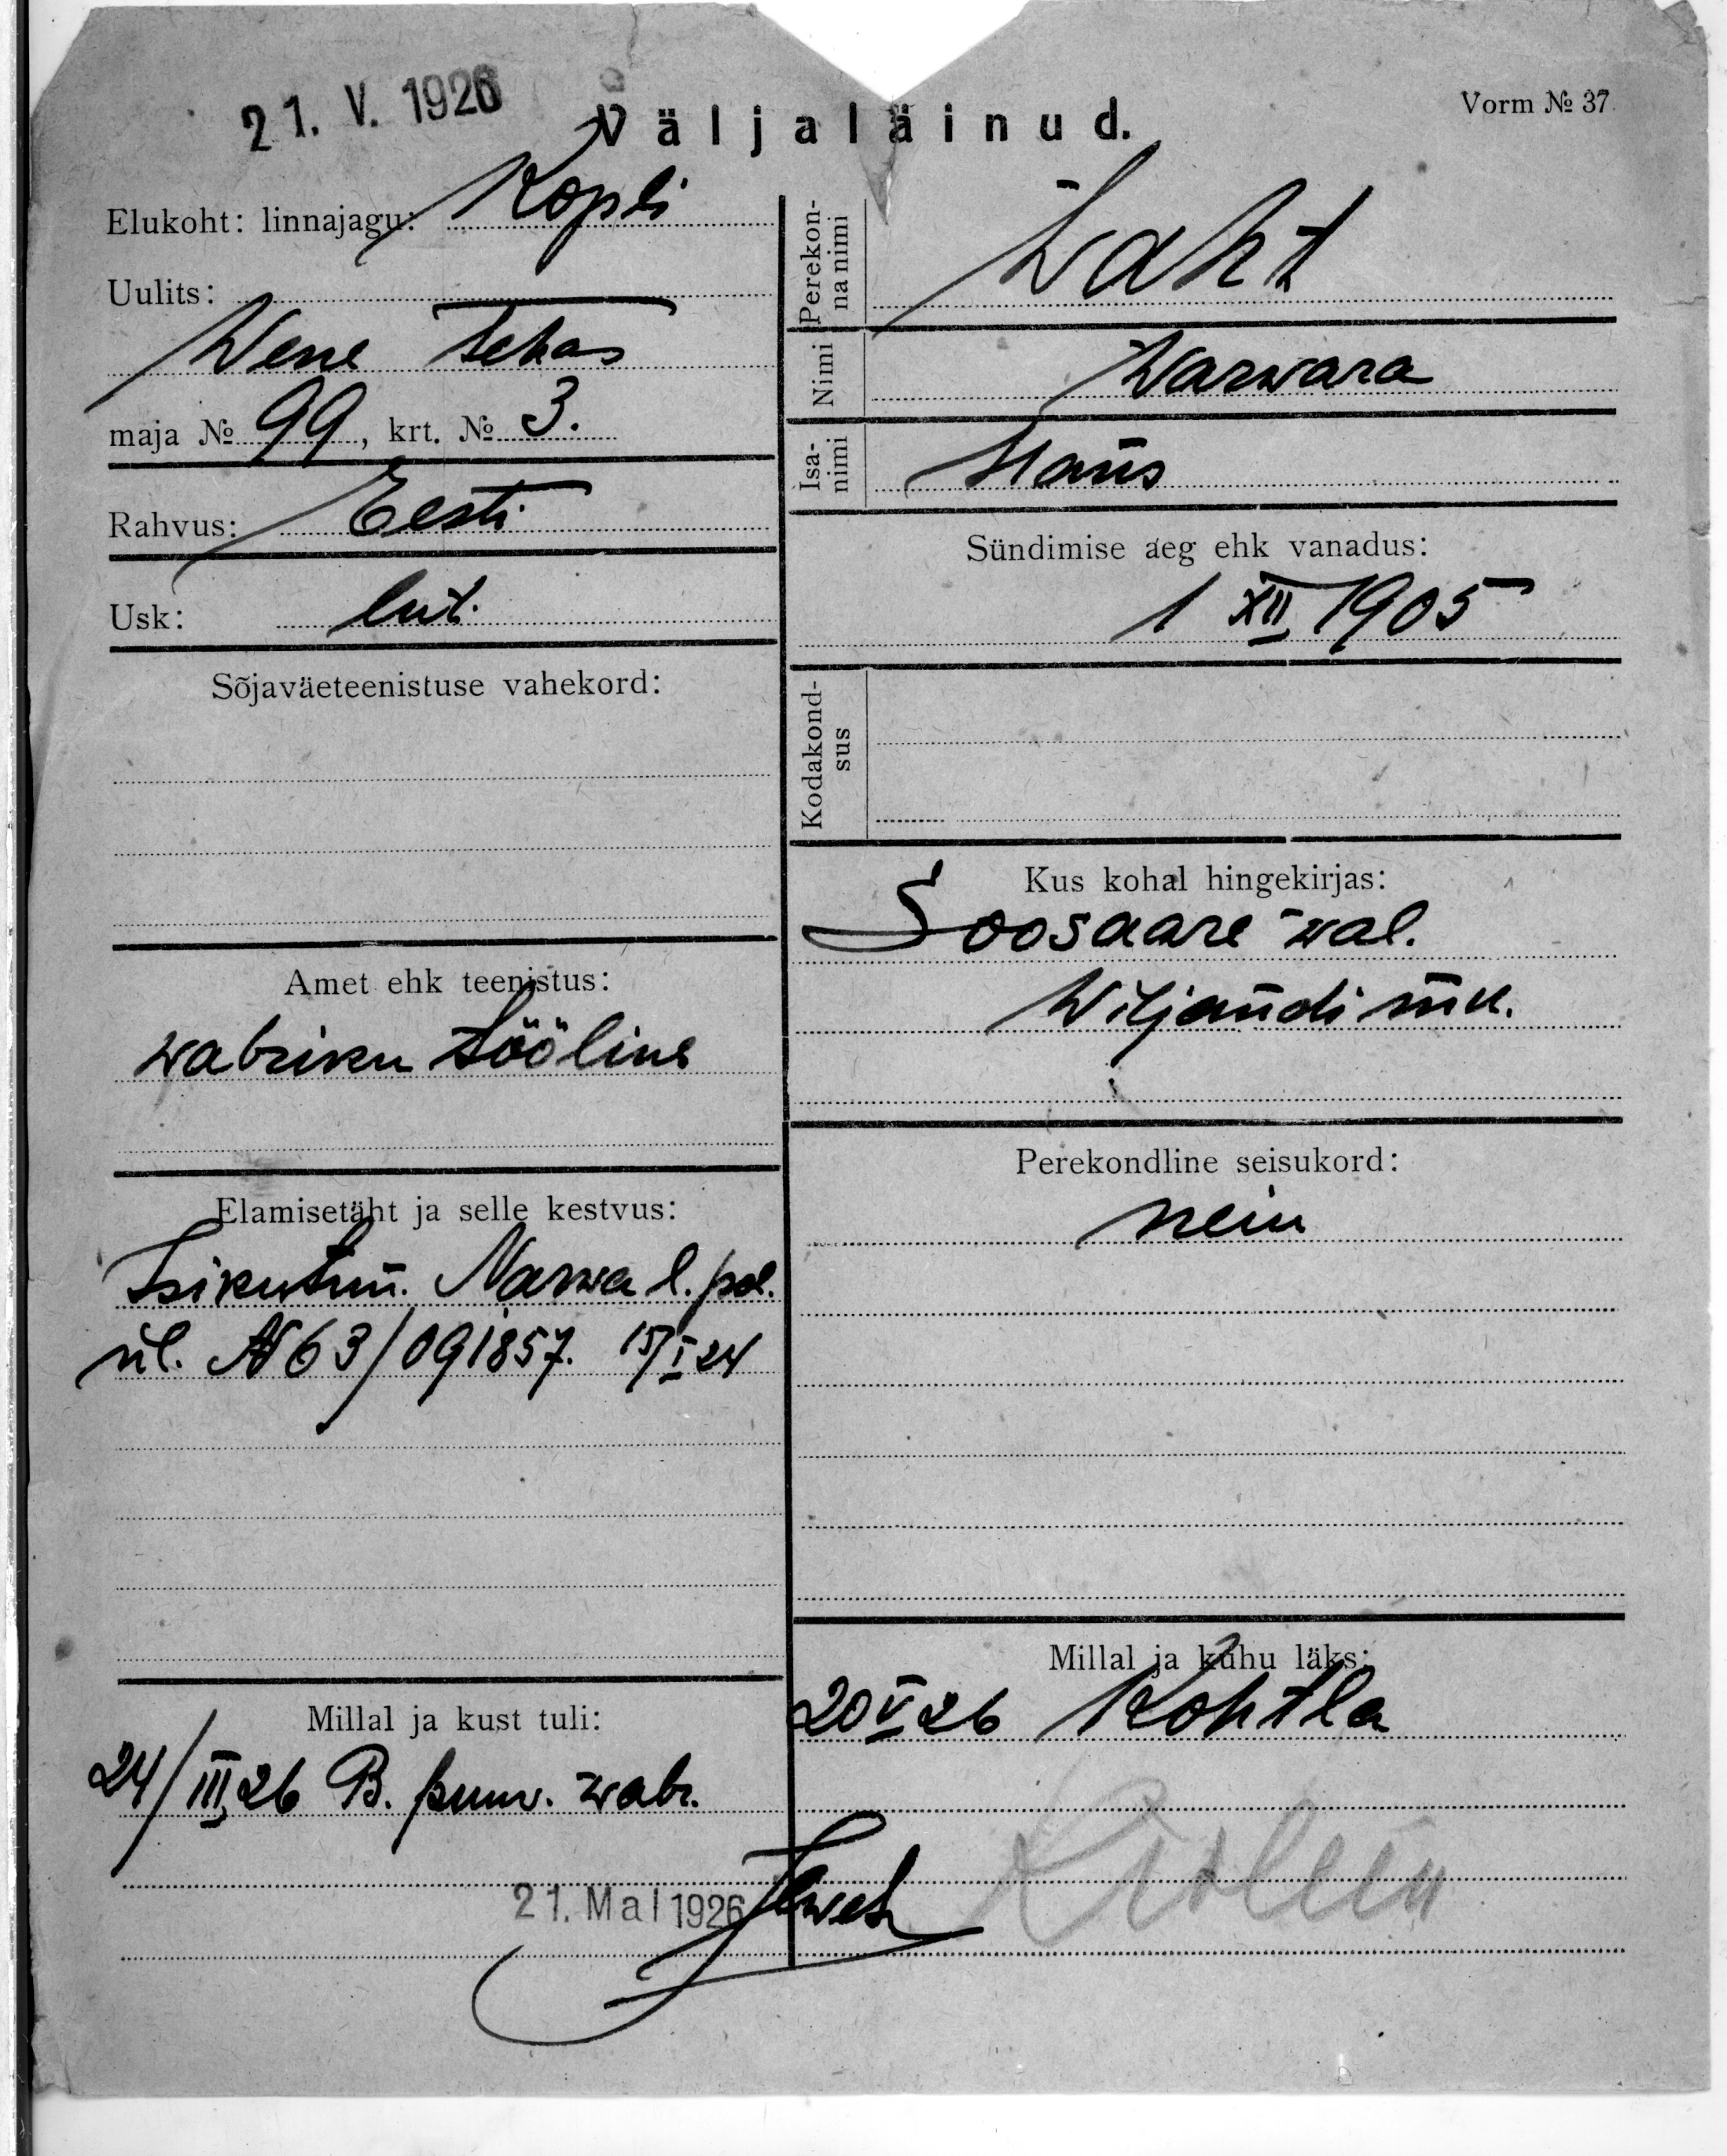 21. V. 1926
Väljaläinud.
Vorm № 37
Elukoht: linnajagu: Kopli
Uulits:
Wene tehas
maja № 99, krt. № 3.
Rahvus: Eesti
Usk: lut.
Sõjaväeteenistuse vahekord:
Amet ehk teenistus:
wabriku tööline
Elamisetäht ja selle kestvus:
Isikutun. Narva l. pol.
ül. № 63/091857. 15/I 24
Millal ja kust tuli:
24/III 26 B. puuv. wabr.
21. Mai 1926
Perekonna nimi
Waht
Nimi Warwara
Isanimi Hans
Sündimise aeg ehk vanadus:
1 XII 1905
Kodakondsus
Kus kohal hingekirjas:
Soosaare wal.
Wiljandi mk.
Perekondline seisukord:
neiu
Millal ja kuhu läks:
20 V 26 Kohtla